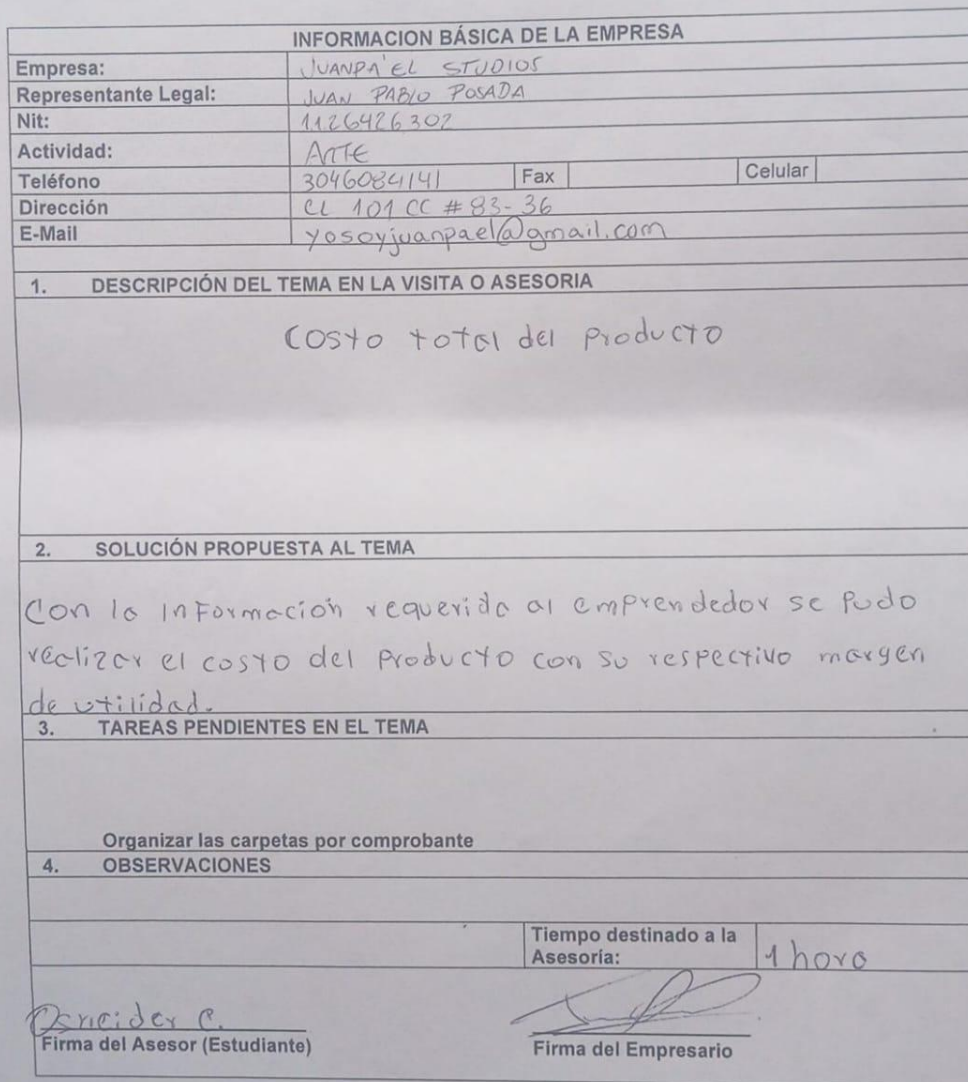 INFORMACION BÁSICA DE LA EMPRESA
Empresa: JUANPA'EL STUDIOS
Representante Legal: JUAN PABLO POSADA
Nit: 1126426302
Actividad: ARTE
Teléfono 3046084141 Fax Celular
Dirección CL 101 CC # 83-36
E-Mail yosoyjuanpael@gmail.com
1. DESCRIPCIÓN DEL TEMA EN LA VISITA O ASESORIA
Costo total del producto
2. SOLUCIÓN PROPUESTA AL TEMA
Con la información requerida al emprendedor se pudo
realizar el costo del producto con su respectivo margen
de utilidad.
3. TAREAS PENDIENTES EN EL TEMA
Organizar las carpetas por comprobante
4. OBSERVACIONES
Tiempo destinado a la
Asesoría: 1 hora
C.
Firma del Asesor (Estudiante) Firma del Empresario